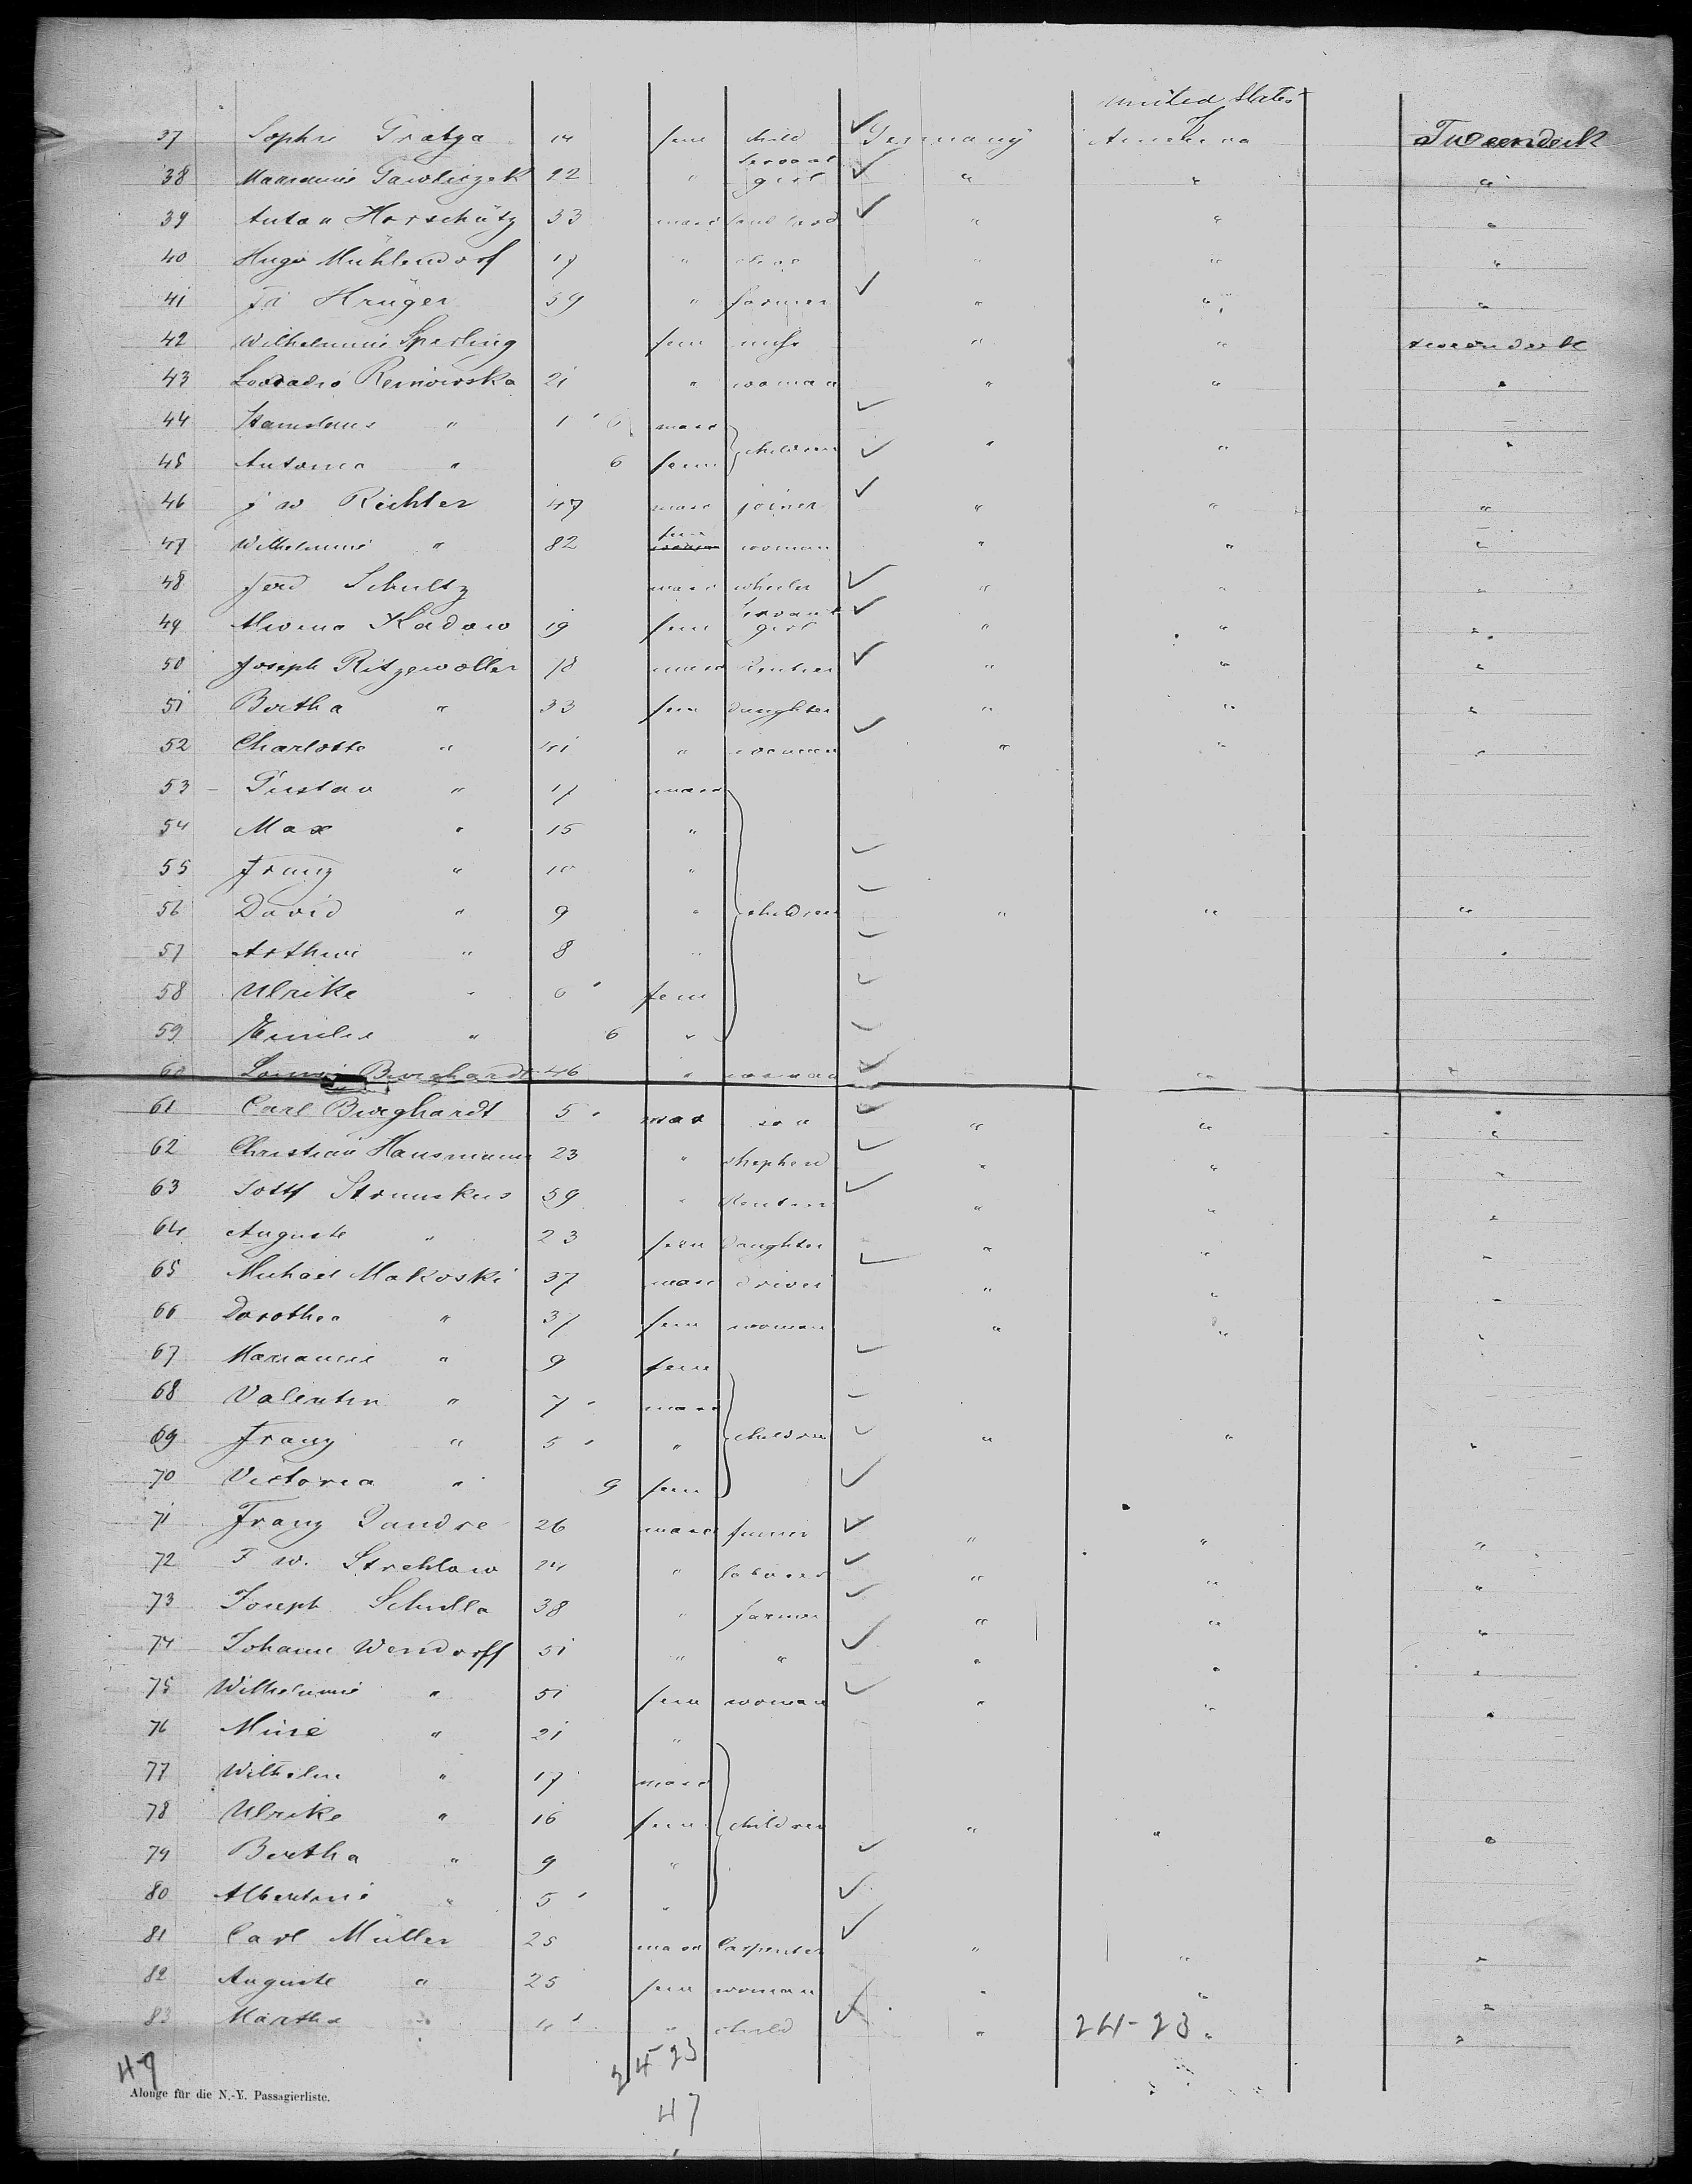 United States
37 Sophie Gratza 14 fem child Germany America Tweendeck
38 Marianne Gawliczek 22 " servant girl " " "
39 Anton Horschütz 33 masc " " "
40 Hugo Mühlendorf 17 " " " "
41 Fr Krüger 59 " farmer " " "
42 Wilhelmine Sperling fem " " tweendeck
43 Reinowska 21 " woman " " "
44 Stanislaus " 1 6 masc
45 Antonia " 6 fem children " " "
46 J w Richter 47 masc joiner " " "
47 Wilhelmine " 82 fem woman " " "
48 Ferd Schultz masc wheeler " " "
49 Alwina Kadow 19 fem servant girl " " "
50 Joseph Ritzewoller 78 masc Rentier " " "
51 Bertha " 33 fem daughter " " "
52 Charlotte " 41 " woman " " "
53 Gustav " 17 masc
54 Max " 15 "
55 Franz " 10 "
56 David " 9 " children " " "
57 Arthur " 8 " "
58 Ulrike " 6 fem
59 Emilie " 6 "
60 Burghardt 46 " woman " "
61 Carl Burghardt 5 masc son " " "
62 Christian Hausmann 23 " shepherd " " "
63 Gottf Strunskus 59 " Rentier " " "
64 Auguste " 23 fem Daughter " " "
65 Michael Makoski 37 masc driver " " "
66 Dorothea " 37 fem woman " " "
67 Marianne " 9 fem
68 Valentin " 7 masc
69 Franz " 5 " children " " "
70 Victoria " 9 fem
71 Franz Dandre 26 masc " " "
72 F w. Strehlow 24 " labourer " " "
73 Joseph Schulla 38 " farmer " " "
74 Johann Wendorff 51 " " " " "
75 Wilhelmine " 51 fem woman " " "
76 Mine " 21 "
77 Wilhelm " 17 masc
78 Ulrike " 16 fem children " " "
79 Bertha " 9 "
80 Albertine " 5 "
81 Carl Müller 25 masc Carpenter " " "
82 Auguste " 25 fem woman " " "
83 Martha " 4 " child " 24-23 " "
47
24 23
Alonge für die N.-Y. Passagierliste.
47